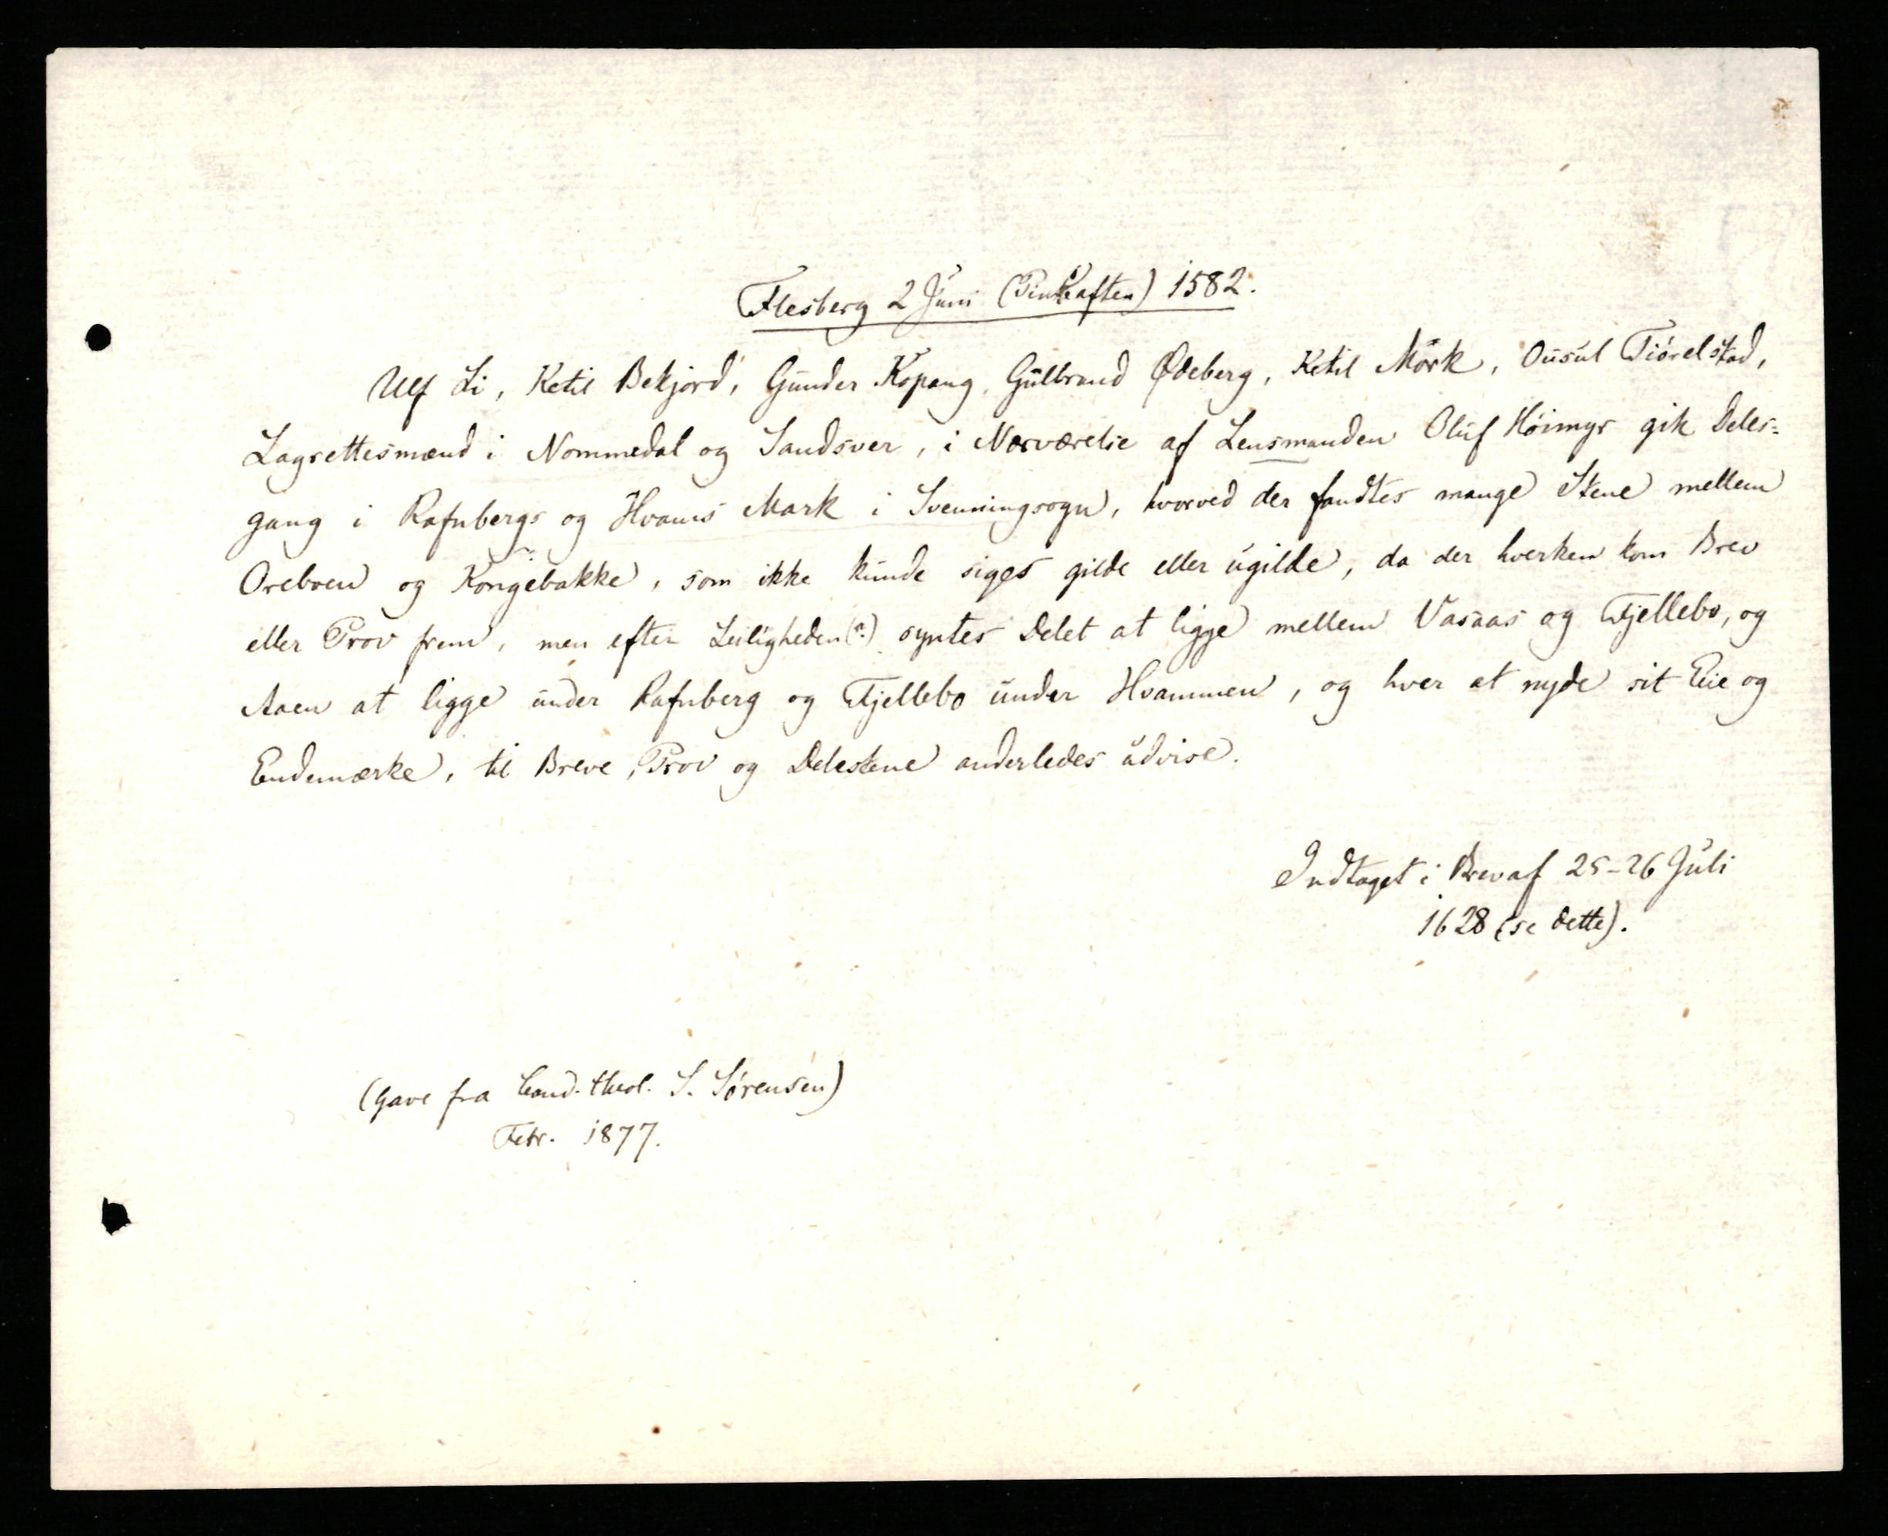 Flesberg 2 Juni (Pintsaften) 1582.
Ulf Li, Ketil Bekjord, Gunder Kopang, Gulbrand Ødeberg, Ketil Mörk, Ousul Fiørelstad,
Lagrettesmænd i Nommedal og Sandsver, i Nærværelse af Lensmanden Oluf Høimyr gik Deles-
gang i Rafnbergs og Hvams Mark i Svenningsogn, hvorved der fandtes mange Stene mellem
Oreboen og Kongebakke, som ikke kunde siges gilde eller ugilde, da der hverken kom Brev
eller Prov frem, men efter Leiligheden(?) syntes Delet at ligge mellem Vasaas og Fjellebo, og
Aaen at ligge under Rafnberg og Fjellebo under Hvammen, og hver at nyde sit Eie og
Endemærke, til Breve, Prov og Delestene anderledes udvise.
Indtaget i Brev af 25-26 Juli
1628 (se dette).
(Gave fra Cand. theol. S. Sørensen)
Febr. 1877.